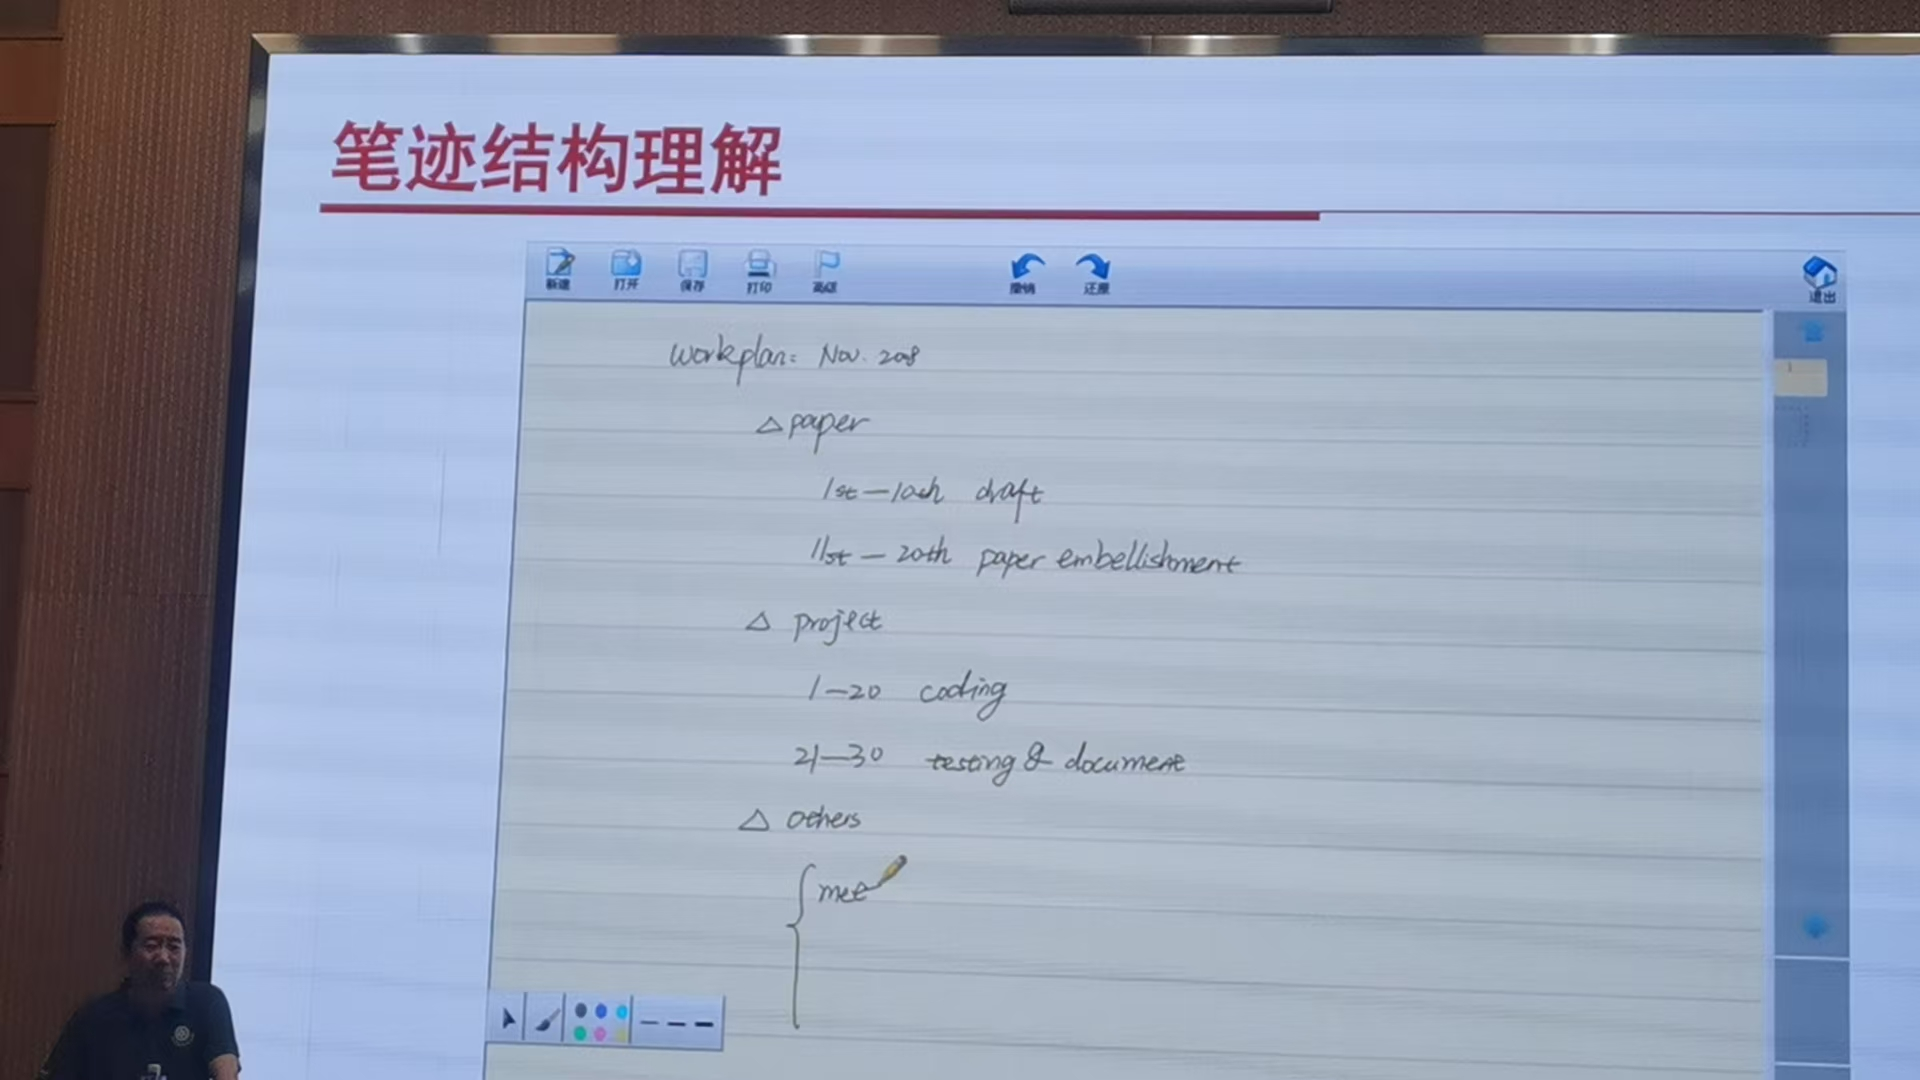 笔迹结构理解
新建 打开 保存 打印 高级 撤销 还原 退出
Workplan: Nov. 2008
△ paper
1st — 10th draft
11st — 20th paper embellishment
△ project
1 — 20 coding
21 — 30 testing & document
△ others
{ mee